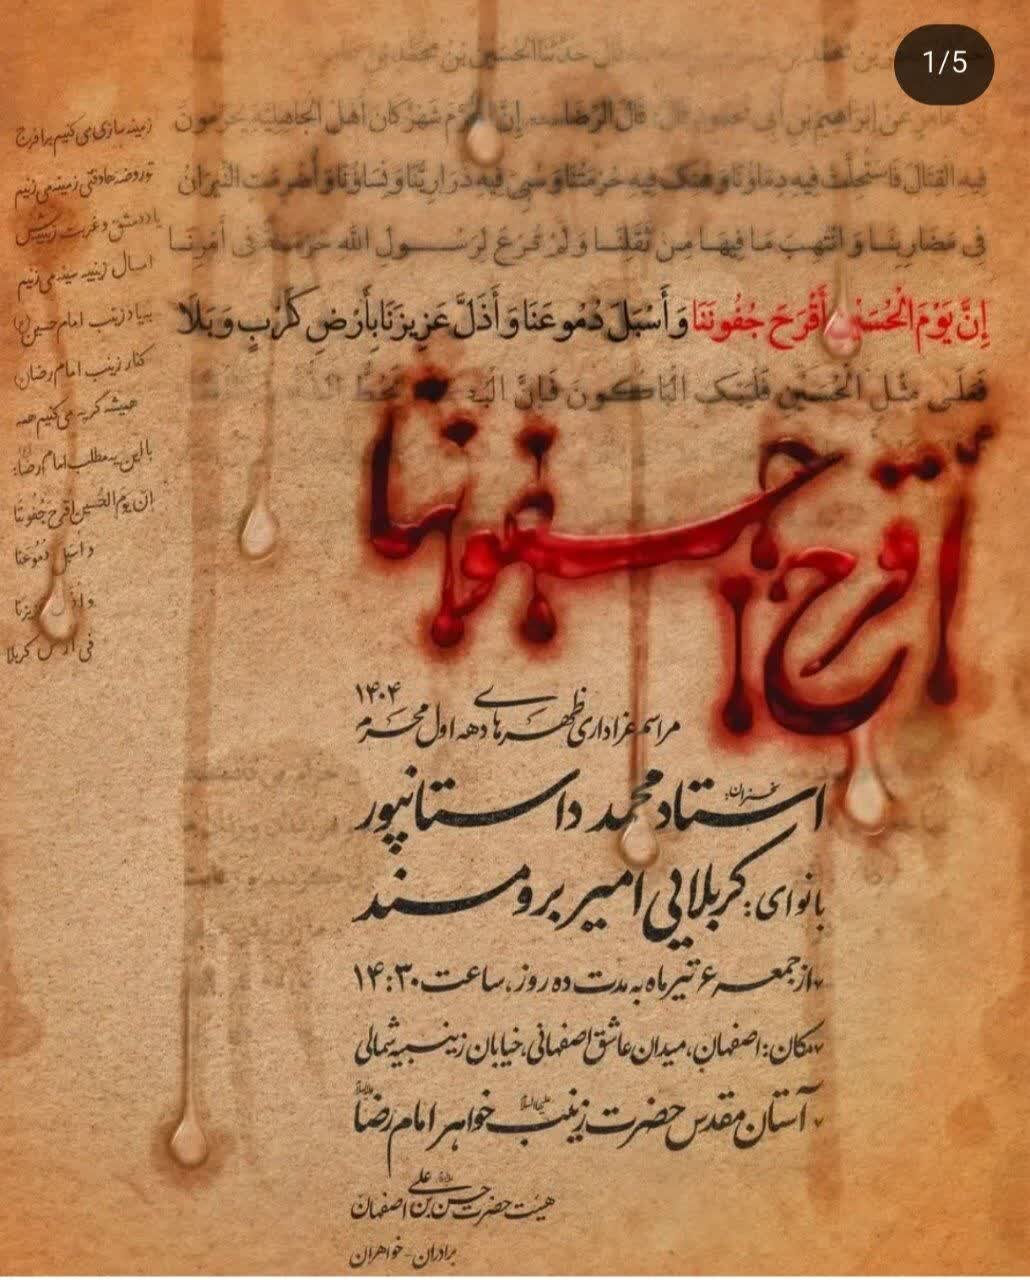 1/5
قال حدثنا الحسین بن محمد بن
عامر عن إبراهیم بن أبی محمود قال: قال الرضا إن المحرم شهر کان أهل الجاهلیة یحرمون
فیه القتال فاستحلت فیه دماؤنا و هتک فیه حرمتنا و سبی فیه ذرارینا و نساؤنا و أضرمت النیران
فی مضاربنا و انتهب ما فیها من ثقلنا و لم ترع لرسول الله حرمة فی أمرنا
إِنَّ یَوْمَ الْحُسَیْنِ أَقْرَحَ جُفُونَنَا وَ أَسْبَلَ دُمُوعَنَا وَ أَذَلَّ عَزِیزَنَا بِأَرْضِ کَرْبٍ وَ بَلَا
فعلی مثل الحسین فلیبک الباکون فإن البـ یحط
زمینه سازی می کنیم برا فرج
تو روضه
زمینه می زنیم
یاد دمشق و غربت زینبش
امسال زینبیه سینه می زنیم
به یاد زینب امام حسین(ع)
کنار زینب امام رضا
همیشه گریه می کنیم همه
با این یه مطلب امام رضا:
ان یوم الحسین اقرح جفوننا
و اسبل دموعنا
فی کربلا
أقرح جفوننا
مراسم عزاداری ظهرهای دهه اول محرم ۱۴۰۴
سخنران: استاد محمد داستانپور
با نوای: کربلایی امیر برومند
از جمعه ۶ تیر ماه به مدت ده روز، ساعت ۱۴:۳۰
مکان: اصفهان، میدان عاشق اصفهانی، خیابان زینبیه شمالی
آستان مقدس حضرت زینب علیهاالسلام خواهر امام رضا
هیئت حضرت حسن بن علی اصفهان
برادران - خواهران